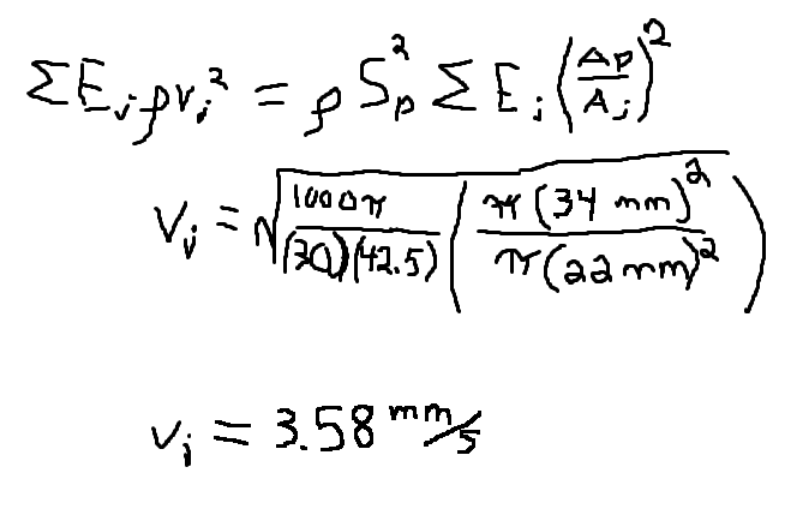 ΣE_j ρv_j² = ρ S_p² Σ E_j (A_p/A_j)²
v_j = √(1000π/(30)(42.5) (π(34 mm)²/π(22 mm)²))
v_j = 3.58 mm/s